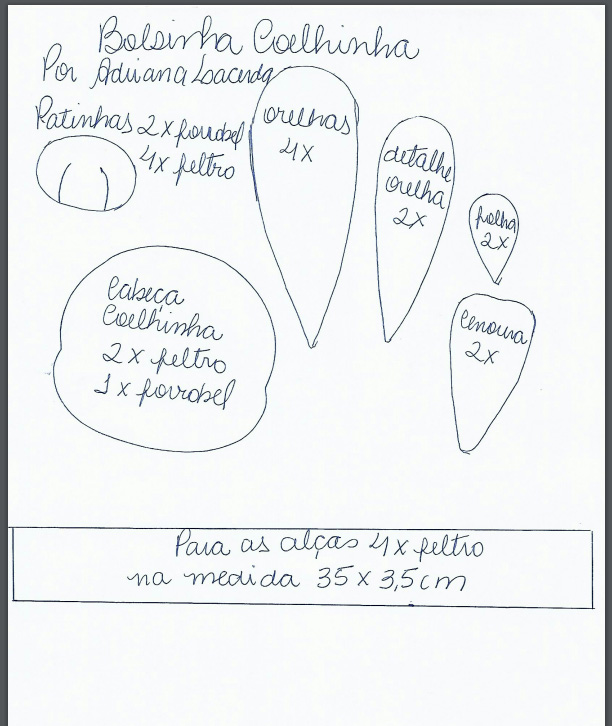 Bolsinha Coelhinha
Por Adriana Lacerda
Patinhas 2x fourobel
4x feltro
orelhas
4x
detalhe
orelha
2x
folha
2x
Cenoura
2x
Cabeça
Coelhinha
2x feltro
1x fourobel
Para as alças 4x feltro
na medida 35 x 3,5cm